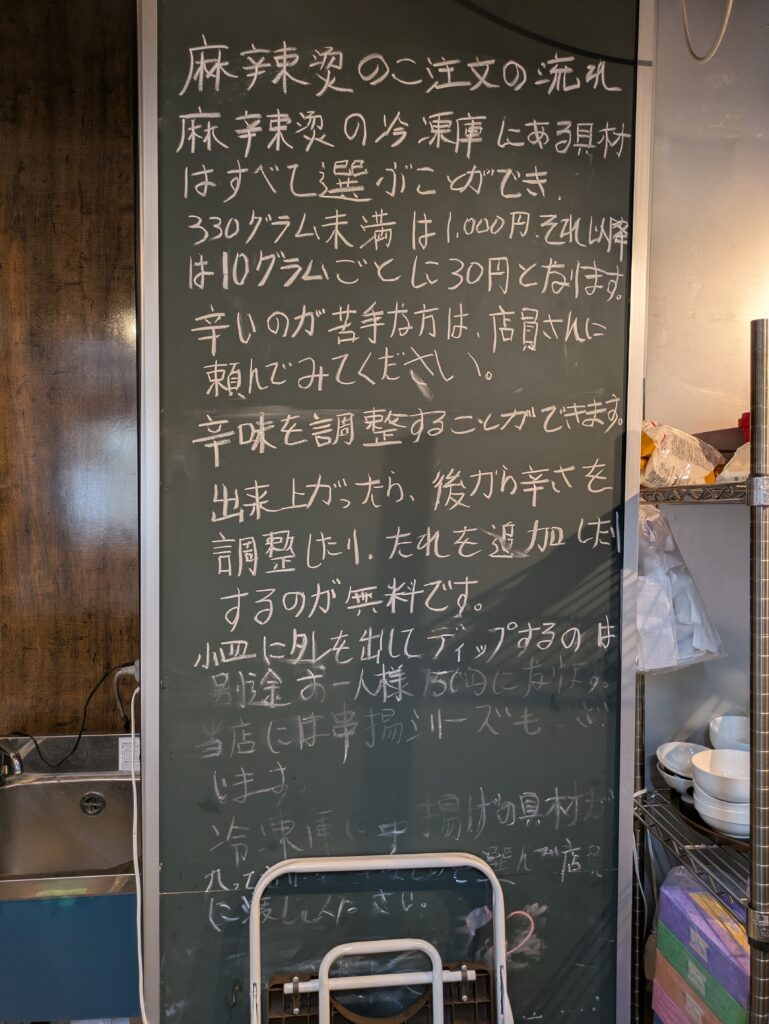 麻辣烫のご注文の流れ
麻辣烫の冷凍庫にある具材
はすべて選ぶことができ.
330グラム未満は1.000円.それ以降
は10グラムごとに30円となります。
辛いのが苦手な方は、店員さんに
頼んでみてください。
辛味を調整することができます。
出来上がったら、後から辛さを
調整したり.たれを追加したり
するのが無料です。
小皿にタレを出してディップするのは
別途お一人様
当店には串揚シリーズも
います。
冷凍庫に 揚げの具材が
選んで店員
に渡してください。